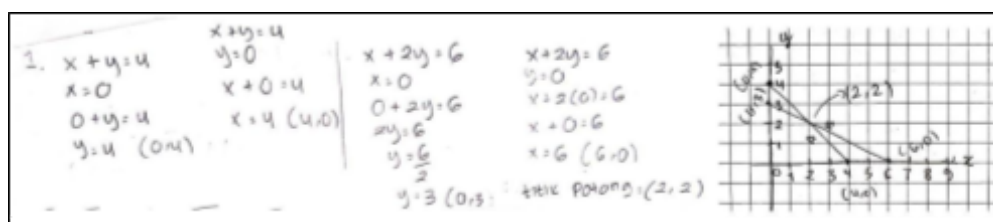 1. x+y=4
x=0
0+y=4
y=4 (0,4)
x+y=4
y=0
x+0=4
x=4 (4,0)
x+2y=6
x=0
0+2y=6
2y=6
y=6/2
y=3 (0,3)
x+2y=6
y=0
x=2(0)=6
x+0=6
x=6 (6,0)
titik potong=(2,2)
y
5
4
3
2
1
(0,4)
(0,3)
(2,2)
(6,0)
x
0 1 2 3 4 5 6 7 8 9
(4,0)